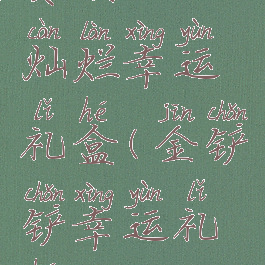 càn làn xìng yùn
灿烂幸运
lǐ hé jīn chǎn
礼盒(金铲
chǎn xìng yùn lǐ
铲幸运礼